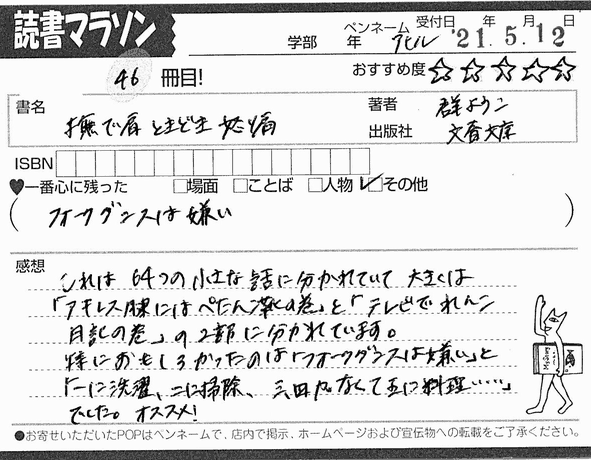 読書マラソン
学部 年 ペンネーム アヒル 受付日 '21年5月12日
46 冊目! おすすめ度 ☆☆☆☆☆
書名 撫で肩ときどき怒り肩
著者 群ようこ
出版社 文春文庫
ISBN
♥一番心に残った □場面 □ことば □人物 ☑その他
(フォークダンスは嫌い)
感想
これは 64つの小さな話に分かれていて 大きくは
「アキレス腱にはぺたん靴の巻」と「テレビでれんこ
日記の巻」の2部に分かれています。
特におもしろかったのは「フォークダンスは嫌い」と
「一に洗濯、二に掃除、三四がなくて五に料理……」
でした。オススメ!
●お寄せいただいたPOPはペンネームで、店内で掲示、ホームページおよび宣伝物への転載をご了承ください。